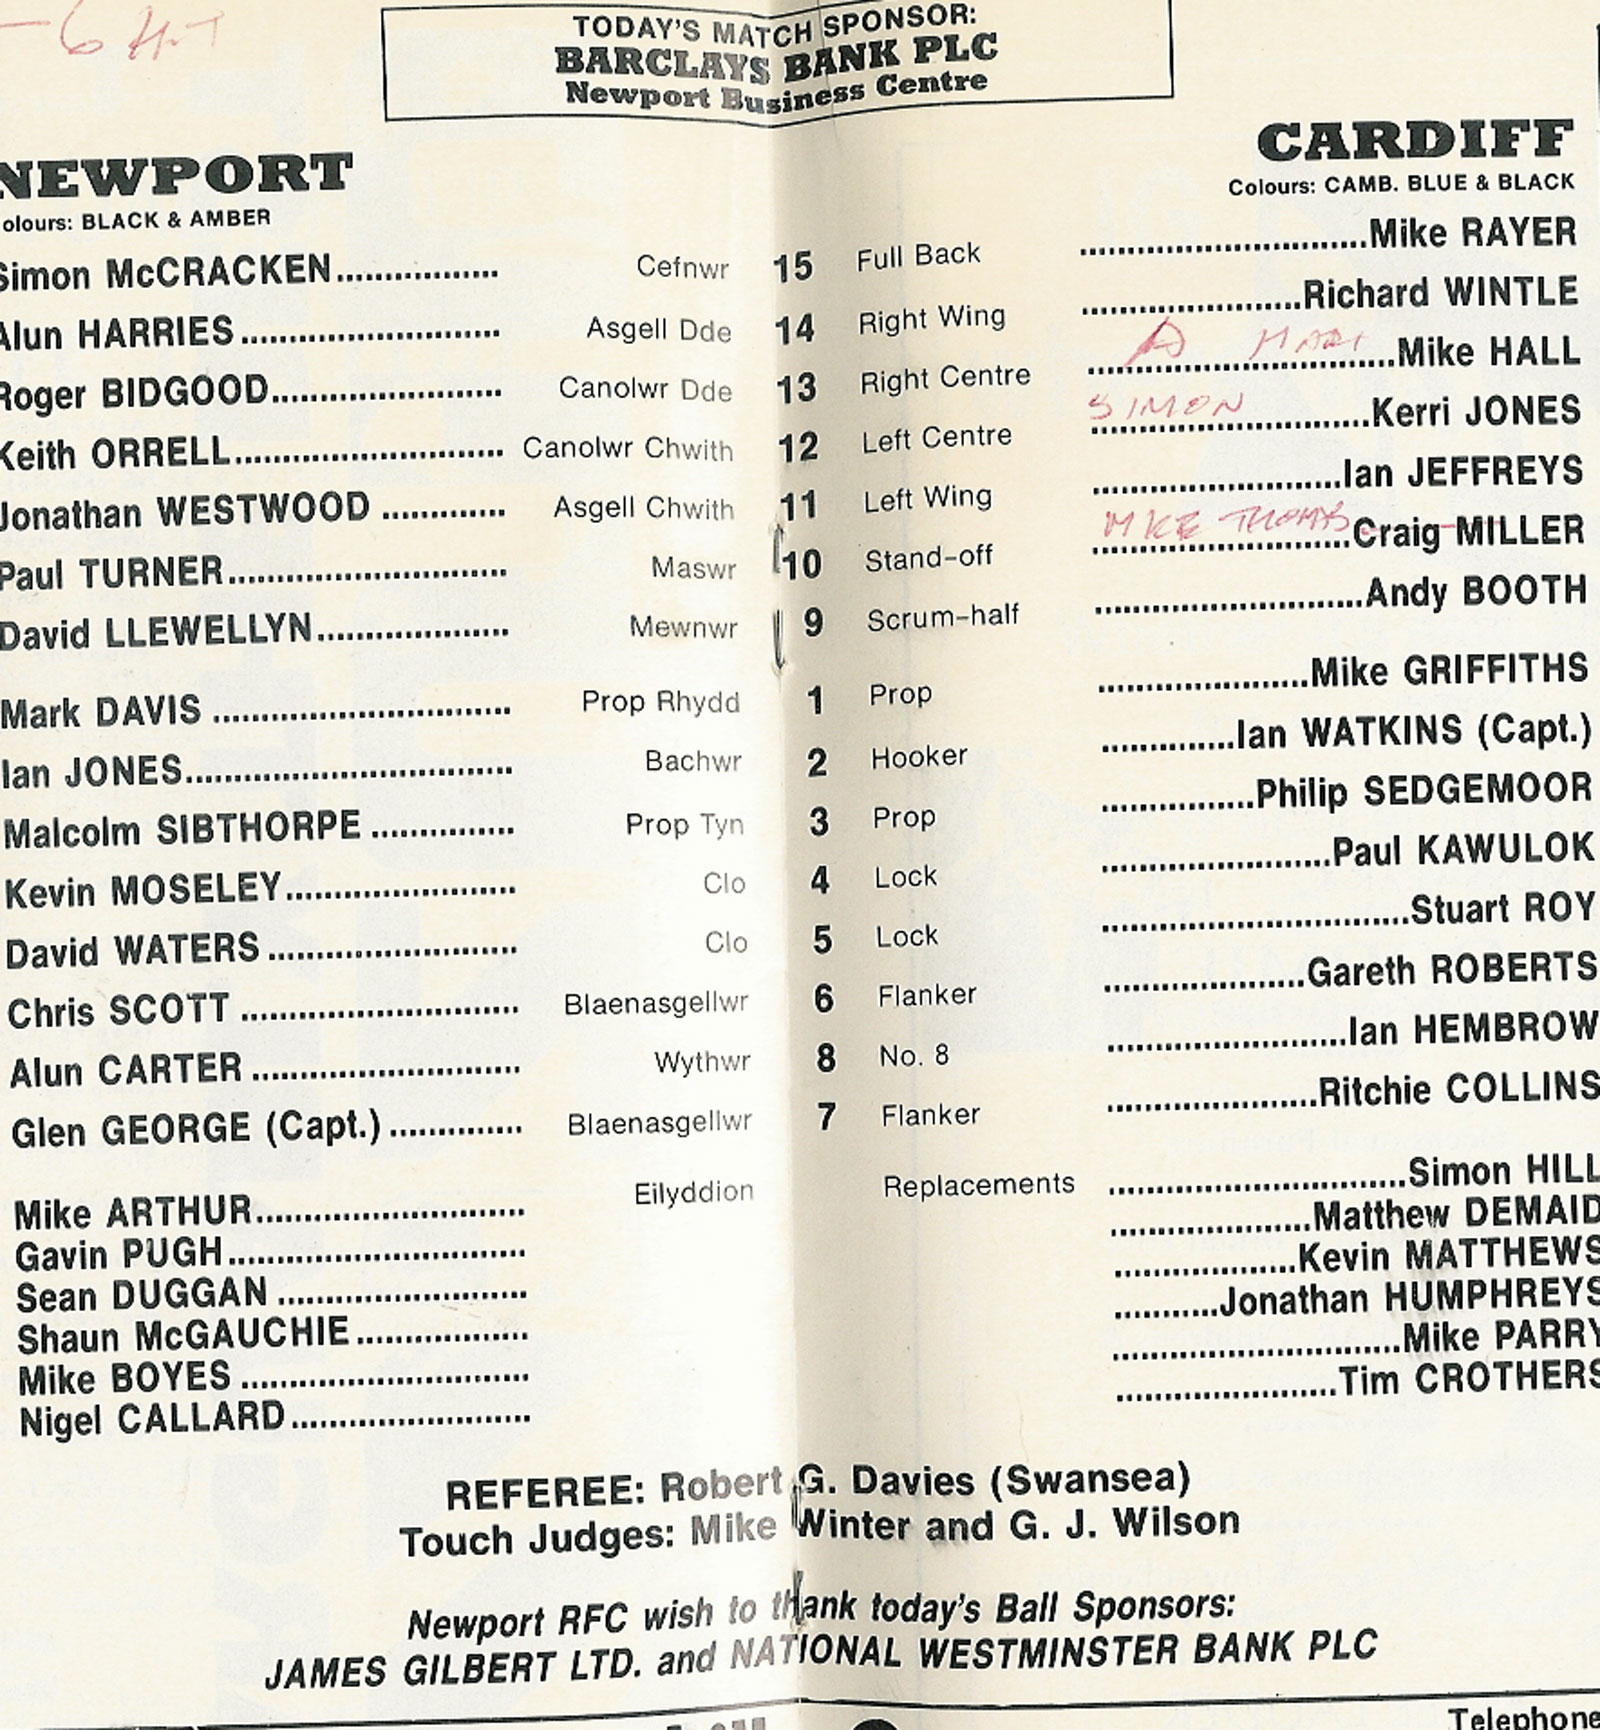 -6 H-T
TODAY'S MATCH SPONSOR:
BARCLAYS BANK PLC
Newport Business Centre
NEWPORT
olours: BLACK & AMBER
CARDIFF
Colours: CAMB. BLUE & BLACK
Simon McCRACKEN.................. Cefnwr 15 Full Back ..............................Mike RAYER
Alun HARRIES............................. Asgell Dde 14 Right Wing .......................Richard WINTLE
A
Roger BIDGOOD.......................... Canolwr Dde 13 Right Centre ................................Mike HALL
SIMON
Keith ORRELL.............................. Canolwr Chwith 12 Left Centre .............................Kerri JONES
Jonathan WESTWOOD ............. Asgell Chwith 11 Left Wing ..........................Ian JEFFREYS
MIKE THOMAS
Paul TURNER............................... Maswr 10 Stand-off ...........................Craig MILLER
David LLEWELLYN..................... Mewnwr 9 Scrum-half ............................Andy BOOTH
Mark DAVIS ................................ Prop Rhydd 1 Prop ......................Mike GRIFFITHS
Ian JONES................................... Bachwr 2 Hooker ..............Ian WATKINS (Capt.)
Malcolm SIBTHORPE ............... Prop Tyn 3 Prop ................Philip SEDGEMOOR
Kevin MOSELEY......................... Clo 4 Lock ........................Paul KAWULOK
David WATERS ........................... Clo 5 Lock ................................Stuart ROY
Chris SCOTT .............................. Blaenasgellwr 6 Flanker .....................Gareth ROBERTS
Alun CARTER ............................. Wythwr 8 No. 8 .........................Ian HEMBROW
Glen GEORGE (Capt.).............. Blaenasgellwr 7 Flanker ......................Ritchie COLLINS
Mike ARTHUR............................. Eilyddion Replacements ...............................Simon HILL
Gavin PUGH................................ .....................Matthew DEMAID
Sean DUGGAN ........................... ...................Kevin MATTHEWS
Shaun McGAUCHIE................... ...........Jonathan HUMPHREYS
Mike BOYES ............................... ...............................Mike PARRY
Nigel CALLARD.......................... ........................Tim CROTHERS
REFEREE: Robert G. Davies (Swansea)
Touch Judges: Mike Winter and G. J. Wilson
Newport RFC wish to thank today's Ball Sponsors:
JAMES GILBERT LTD. and NATIONAL WESTMINSTER BANK PLC
Telephone